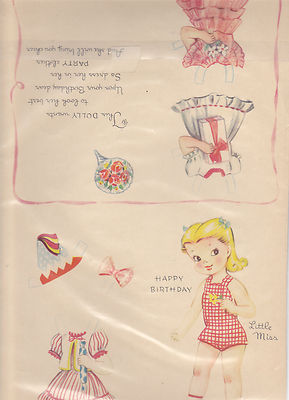 This DOLLY wants
to look her best
Upon your Birthday dear
So dress her in her
PARTY clothes
And she will bring you cheer
HAPPY
BIRTHDAY
Little
Miss